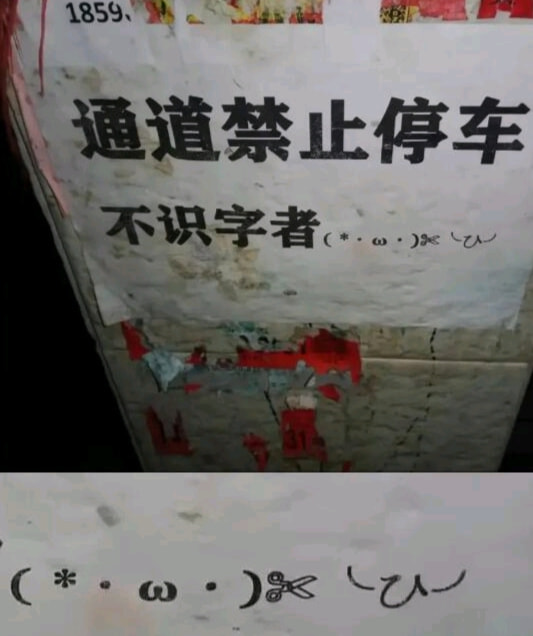 1859、
通道禁止停车
不识字者(*·ω·)✂╰ひ╯
31
(*·ω·)✂╰ひ╯